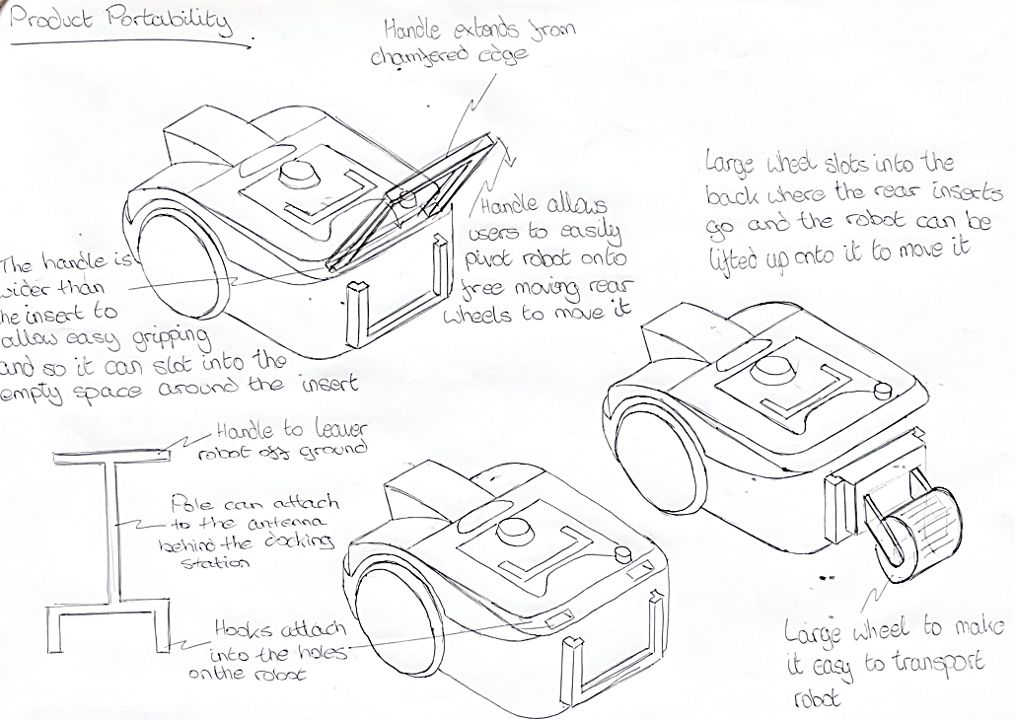 Product Portability.
Handle extends from
chamfered edge
Handle allows
users to easily
pivot robot onto
free moving rear
wheels to move it
Large wheel slots into the
back where the rear inserts
go and the robot can be
lifted up onto it to move it
The handle is
wider than
the insert to
allow easy gripping
and so it can slot into the
empty space around the insert
Handle to leaver
robot off ground
Pole can attach
to the antenna
behind the docking
station
Hooks attach
into the holes
on the robot
Large wheel to make
it easy to transport
robot